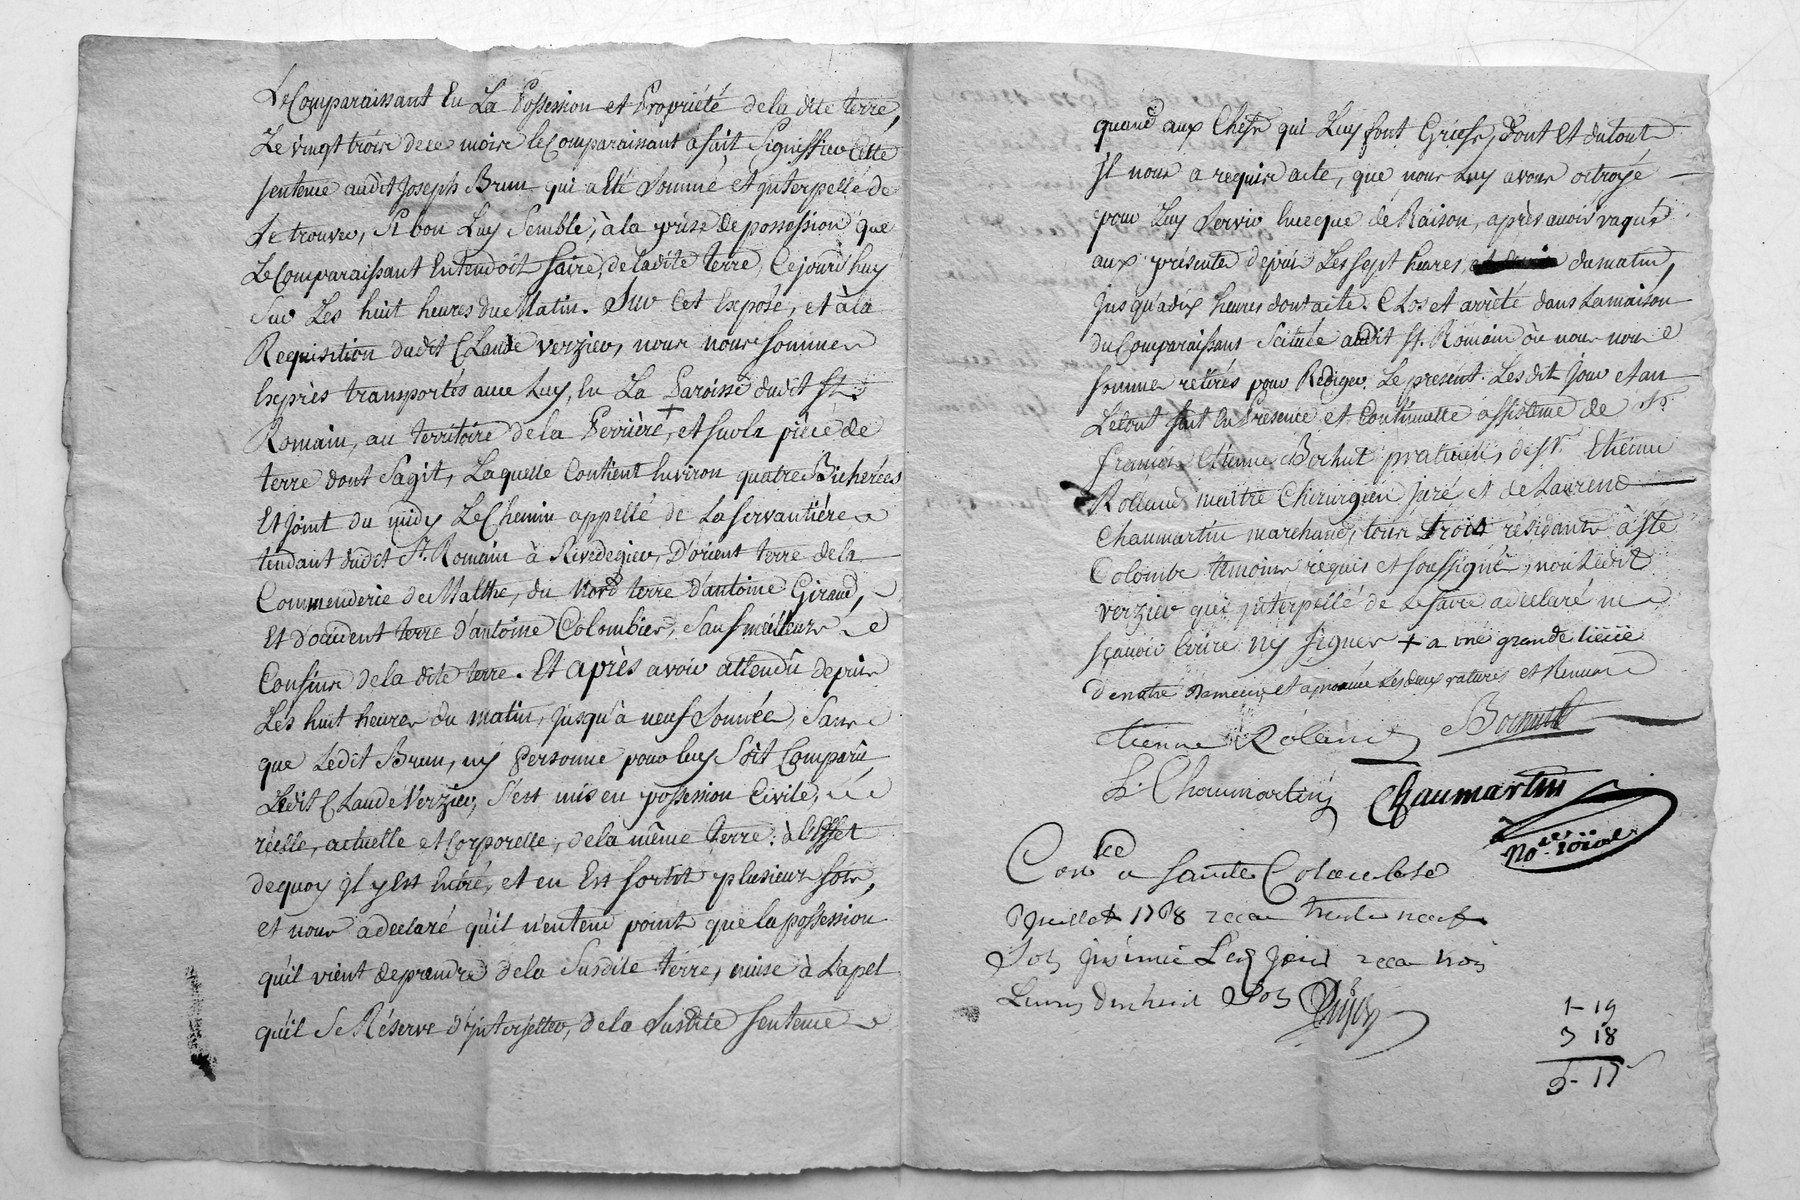 Le Comparaissant En La Possession et Propriété de la dite terre,
Le vingt trois de ce mois le Comparaissant a fait Signiffier Cette
sentence audit Joseph Brun qui a Eté Sommé et interpellé de
Se trouver, Si bon Luy Semble, à la prise de possession que
Le Comparaissant Entendoit faire, de ladite terre, Cejourd'huy
Sur Les huit heures du Matin. Sur Cet Exposé, et à la
Requisition dudit Claude Verzier, nous nous sommes
Exprès transportés avec Luy, En La Paroisse dudit St.
Romain, au territoire de la Perrière +, et sur la pièce de
terre dont S'agit, Laquelle Contient Environ quatre Bicherées
Et Joint du midy Le Chemin appellé de La servantière
tendant dudit St. Romain à Rivedegier, D'orient terre de la
Commenderie de Malthe, du Nord terre d'antoine Giraud,
Et d'occident terre d'antoine Colombier, Sauf meilleurs
Confins de la dite terre. Et après avoir attendû depuis
Les huit heures du matin, Jusqu'à neuf Sonnée, Sans
que Ledit Brun, ny Personne pour luy Soit Comparû
Ledit Claude Verzier, S'est mis en possession Civile,
réelle, actuelle et Corporelle, de la même terre. à l'Effet
de quoy il y Est Entré, et en Est sortit plusieurs fois,
et nous a declaré qu'il n'entend point que la possession
qu'il vient de prendre de la Susdite terre, nuise à L'apel
qu'il Se Réserve d'interjetter, de la Susdite sentence
quand aux Chefs qui Luy font Griefs, Dont Et du tout
Il nous a requis acte, que nous Luy avons octroyé
pour Luy Servir Ence que de Raison, après avoir vaqué
aux présentes depuis Les sept heures du matin,
Jusqu'a dix heures dont acte. Clos et arrêté dans La maison
du Comparaissant Scituée audit St. Romain où nous nous
sommes retirés pour Rediger Le present. Les dit Jour et an
Le tout fait En Présence et Continuelle assistence de Sr.
françois Etienne Bochut praticien, de Sr. Etienne
Rolland maitre Chirurgien Juré et de Laurend
Chaumartin marchand, tous trois résidants à Ste
Colombe temoins requis et soussignés, non Ledit
Verzier qui interpellé de Le faire a declaré ne
sçavoir Ecrire ny signer + a une grande lieüe
de notre Demeure, et approuvé Les deux ratures et Renvoi
Etienne Roland Bochut
L. Chaumartin Chaumartin
No.re roïal
Con.lé a Sainte Colombe
Juillet 1768 recu trente neuf
Sols insinué Led Jour recu trois
Livres dix huit Sols
1-19
3 18
5-17